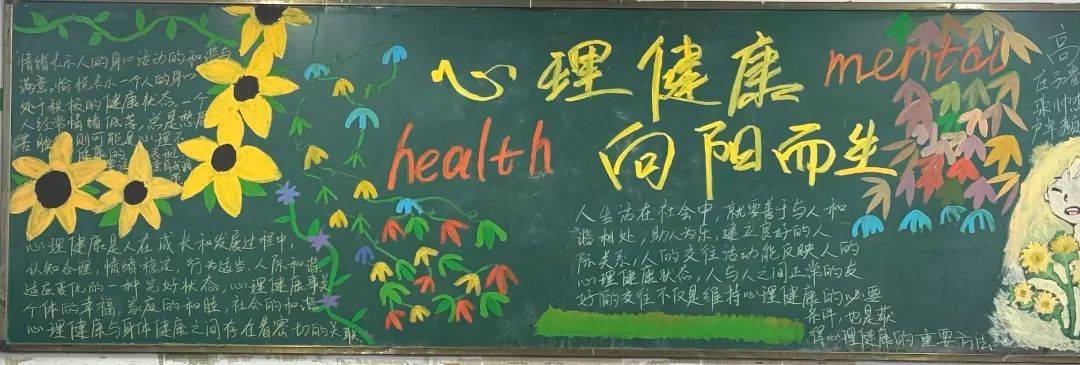 情绪表示人的身心活动的和谐与
满意。愉悦表示一个人的身心
处于积极的健康状态。一个
人经常情绪低落，总是愁眉
苦脸
则可能是心理
健康的
心理健康是人在成长和发展过程中，
认知合理，情绪稳定，行为适当，人际和谐
适应变化的一种完好状态，心理健康事关
个体的幸福，家庭的和睦，社会的和谐
心理健康与身体健康之间存在着密切的关联
心理健康 mental
health 向阳而生
人生活在社会中，就要善于与人和
谐相处，助人为乐，建立良好的人
际关系，人的交往活动能反映人的
心理健康状态，人与人之间正常的友
好的交往不仅是维持心理健康的必要
条件，也是获
得心理健康的重要方法
高